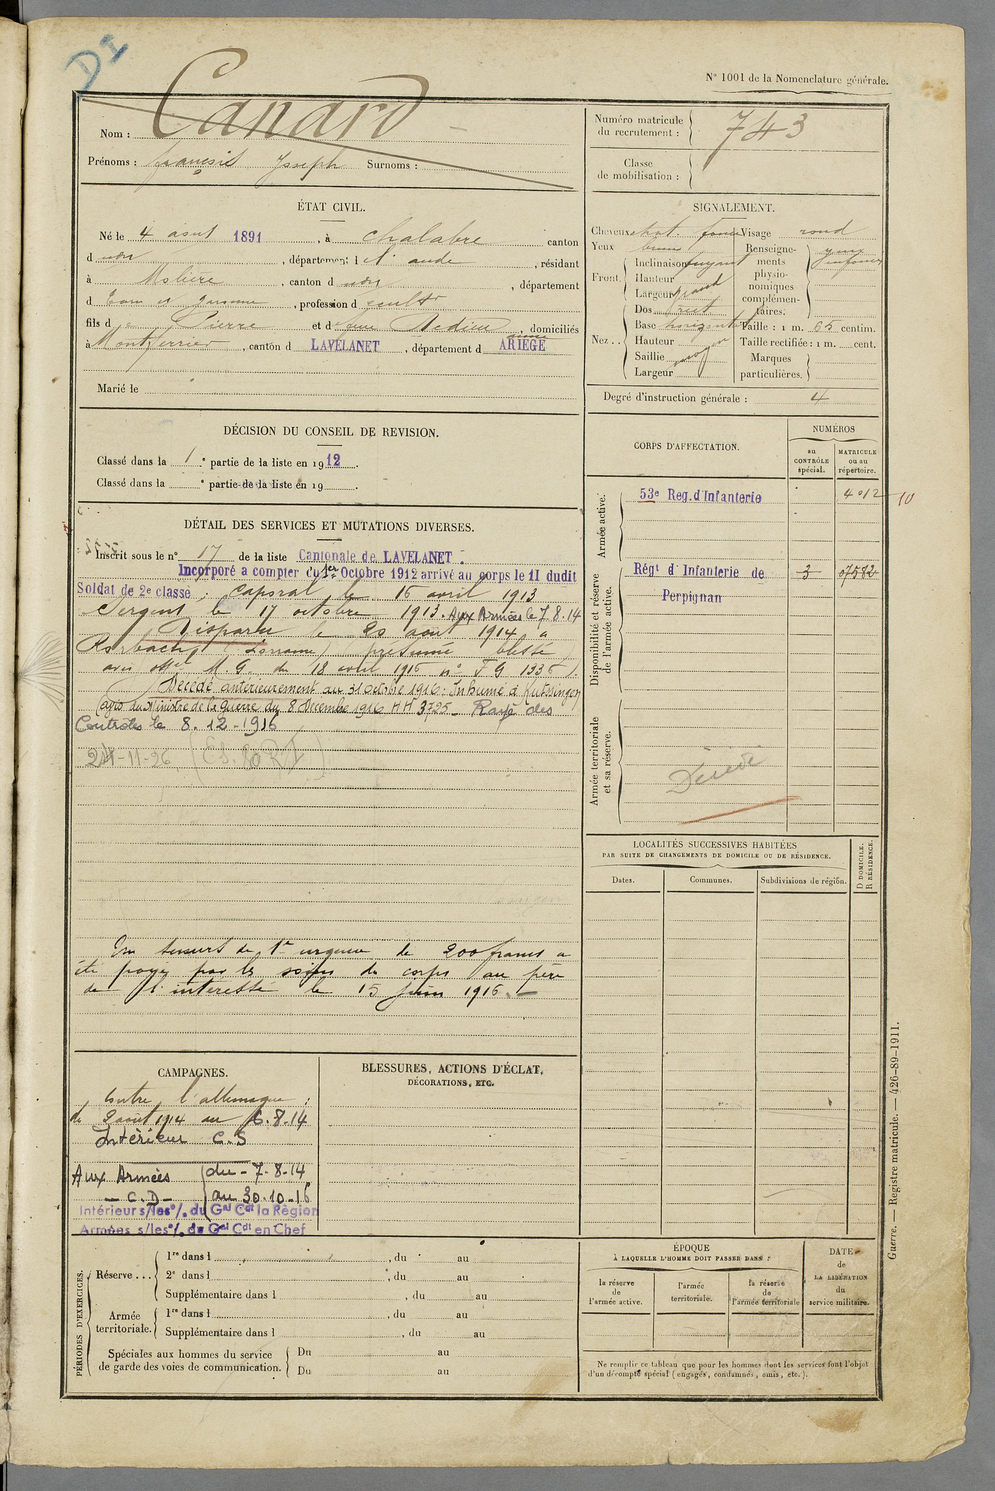 DI
N° 1001 de la Nomenclature générale.
Nom : Canard
Prénoms : françois Joseph Surnoms :
Numéro matricule du recrutement : 743
Classe de mobilisation :
ÉTAT CIVIL.
Né le 4 août 1891, à Chalabre canton
d , département d l'aude, résidant
à , canton d , département
d , profession d
fils d Pierre et d , domiciliés
à Montferrier, canton d LAVELANET, département d ARIÈGE
Marié le
SIGNALEMENT.
Cheveux chat. foncé Visage rond
Yeux Renseignements physionomiques complémentaires.
Front. Inclinaison
Hauteur
Largeur grand
Nez.. Dos
Base horizontal Taille : 1 m. 65 centim.
Hauteur Taille rectifiée : 1 m. cent.
Saillie
Largeur
Marques particulières.
Degré d'instruction générale : 4
DÉCISION DU CONSEIL DE REVISION.
Classé dans la 1re partie de la liste en 1912.
Classé dans la partie de la liste en 19 .
CORPS D'AFFECTATION.
NUMÉROS
au CONTRÔLE spécial.
MATRICULE ou au répertoire.
Armée active.
53e Reg. d'Infanterie 4012 10
Disponibilité et réserve de l'armée active.
Régt d'Infanterie de Perpignan 3 07582
Armée territoriale et sa réserve.
Décédé
DÉTAIL DES SERVICES ET MUTATIONS DIVERSES.
Inscrit sous le n° 17 de la liste Cantonale de LAVELANET.
Incorporé à compter du 1er Octobre 1912 arrivé au corps le 11 dudit
Soldat de 2e classe ; Caporal le 16 avril 1913
Sergent le 17 octobre 1913. Aux Armées le 7.8.14
Disparu le 20 août 1914 à
Rorbach (Lorraine) présumé blessé
avis offel M. G. du 18 avril 1916 n° F G 1336).
Décédé antérieurement au 31 Octobre 1916. Inhumé à
(avis du Ministre de la Guerre du 8 Décembre 1916 HH 3725 _ Rayé des
Contrôles le 8.12-1916
Un secours de 1re urgence de 200 francs a
été payé par les soins du corps au père
de l'intéressé le 15 Juin 1916. —
LOCALITÉS SUCCESSIVES HABITÉES
PAR SUITE DE CHANGEMENTS DE DOMICILE OU DE RÉSIDENCE.
Dates. Communes. Subdivisions de région. D DOMICILE. R RÉSIDENCE.
CAMPAGNES.
Contre l'allemagne :
du 2 août 1914 au 6.8.14
Intérieur C.S
Aux Armées du - 7-8-14
- C.D - au 30-10-16
Intérieur s/les o/. du Gal Cdt la Région
Armées s/les o/. du Gal Cdt en Chef
BLESSURES, ACTIONS D'ÉCLAT,
DÉCORATIONS, ETC.
PÉRIODES D'EXERCICES.
Réserve... 1re dans l , du au
2e dans l , du au
Supplémentaire dans l , du au
Armée territoriale. 1re dans l , du au
Supplémentaire dans l , du au
Spéciales aux hommes du service de garde des voies de communication. Du au
Du au
ÉPOQUE
À LAQUELLE L'HOMME DOIT PASSER DANS :
la réserve de l'armée active.
l'armée territoriale.
la réserve de l'armée territoriale
DATE de LA LIBÉRATION du service militaire.
Ne remplir ce tableau que pour les hommes dont les services font l'objet
d'un décompte spécial (engagés, condamnés, omis, etc.).
Guerre. — Registre matricule. — 426-89-1911.